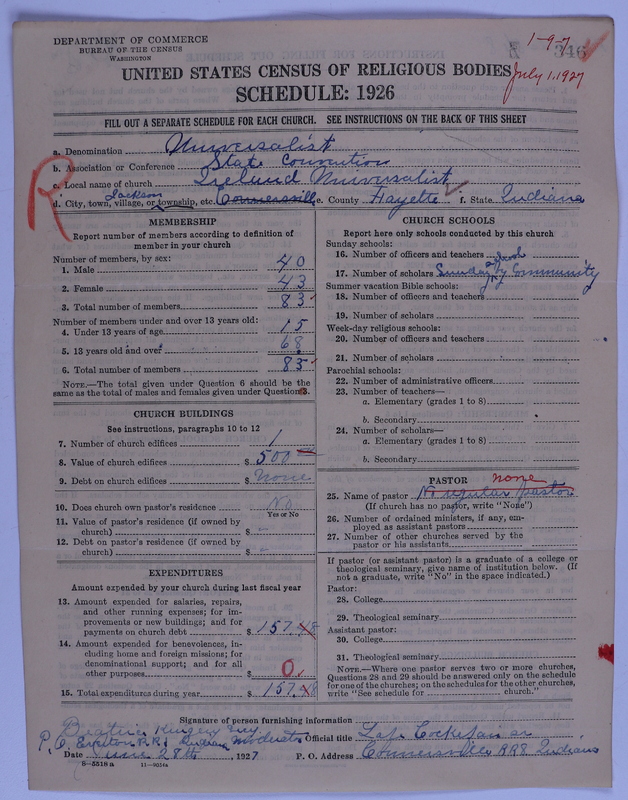 DEPARTMENT OF COMMERCE
BUREAU OF THE CENSUS
WASHINGTON
1-9-7
346
UNITED STATES CENSUS OF RELIGIOUS BODIES
July 1, 1927
SCHEDULE: 1926
FILL OUT A SEPARATE SCHEDULE FOR EACH CHURCH. SEE INSTRUCTIONS ON THE BACK OF THIS SHEET
R
a. Denomination Universalist
b. Association or Conference State Convention
c. Local name of church Ireland Universalist
Jackson
d. City, town, village, or township, etc. Connersville e. County Fayette f. State Indiana
MEMBERSHIP
Report number of members according to definition of
member in your church
Number of members, by sex:
1. Male 40
2. Female 43
3. Total number of members 83
Number of members under and over 13 years old:
4. Under 13 years of age 15
5. 13 years old and over 68
6. Total number of members 83
NOTE.—The total given under Question 6 should be the
same as the total of males and females given under Question 3.
CHURCH BUILDINGS
See instructions, paragraphs 10 to 12
7. Number of church edifices 1
8. Value of church edifices $ 500
9. Debt on church edifices $ None
10. Does church own pastor's residence No
Yes or No
11. Value of pastor's residence (if owned by
church) $ -
12. Debt on pastor's residence (if owned by
church) $ -
EXPENDITURES
Amount expended by your church during last fiscal year
13. Amount expended for salaries, repairs,
and other running expenses; for im-
provements or new buildings; and for
payments on church debt $ 157.48
14. Amount expended for benevolences, in-
cluding home and foreign missions; for
denominational support; and for all
other purposes $ 0
15. Total expenditures during year $ 157.48
CHURCH SCHOOLS
Report here only schools conducted by this church
Sunday schools:
16. Number of officers and teachers
school
17. Number of scholars Sunday by Community
Summer vacation Bible schools:
18. Number of officers and teachers
19. Number of scholars
Week-day religious schools:
20. Number of officers and teachers
21. Number of scholars
Parochial schools:
22. Number of administrative officers
23. Number of teachers—
a. Elementary (grades 1 to 8)
b. Secondary
24. Number of scholars—
a. Elementary (grades 1 to 8)
b. Secondary
PASTOR none
25. Name of pastor No regular pastor
(If church has no pastor, write "None")
26. Number of ordained ministers, if any, em-
ployed as assistant pastors
27. Number of other churches served by the
pastor or his assistants
If pastor (or assistant pastor) is a graduate of a college or
theological seminary, give name of institution below. (If
not a graduate, write "No" in the space indicated.)
Pastor:
28. College
29. Theological seminary
Assistant pastor:
30. College
31. Theological seminary
NOTE.—Where one pastor serves two or more churches,
Questions 28 and 29 should be answered only on the schedule
for one of the churches; on the schedules for the other churches,
write "See schedule for church."
Signature of person furnishing information
Beatrice
P.O. RR1 Indiana Moderator Official title
Date June 28th, 1927 P. O. Address Connersville RR8 Indiana
8—5518a 11—9051a